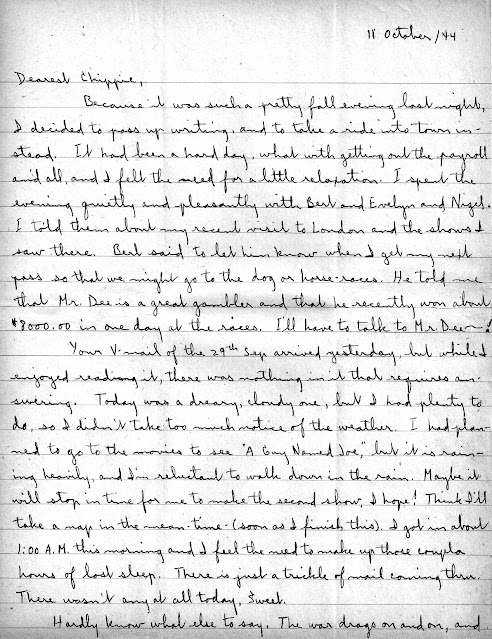 18 October/44
Dearest Chippie,
Because it was such a pretty fall evening last night,
I decided to pass up writing, and to take a ride into town in-
stead. It had been a hard day, what with getting out the payroll
and all, and I felt the need for a little relaxation. I spent the
evening quietly and pleasantly with Bert and Evelyn and Nigel.
I told them about my recent visit to London and the shows I
saw there. Bert said to let him know when I get my next
pass so that we might go to the dog or horse-races. He told me
that Mr. Dee is a great gambler and that he recently won about
$8000.00 in one day at the races. I'll have to talk to Mr. Dee—!
Your V-mail of the 29th Sep arrived yesterday, but while I
enjoyed reading it, there was nothing in it that requires an-
swering. Today was a dreary, cloudy one, but I had plenty to
do, so I didn't take too much notice of the weather. I had plan-
ned to go to the movies to see "A Guy Named Joe," but it is rain-
ing heavily, and I'm reluctant to walk down in the rain. Maybe it
will stop in time for me to make the second show, I hope! Think I'll
take a nap in the mean-time (soon as I finish this). I got in about
1:00 A.M. this morning and I feel the need to make up those coupla
hours of lost sleep. There is just a trickle of mail coming thru.
There wasn't any at all today, Sweet.
Hardly know what else to say. The war drags on and on, and